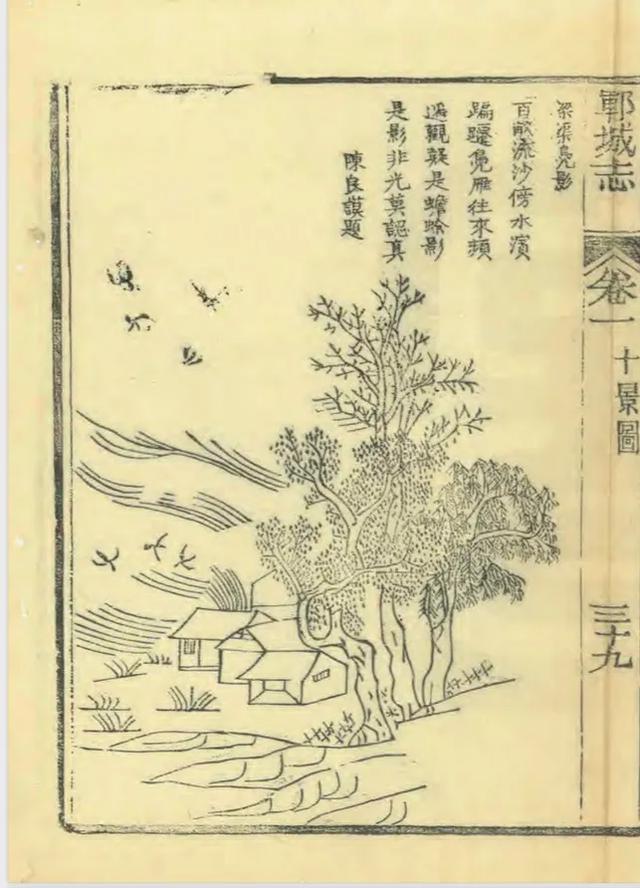 鄆城志
卷一
十景圖
三十九
梁渠鳧影
百畝流沙傍水濱
蹁躚鳧雁往來頻
遙觀疑是蟾蜍影
是影非光莫認真
陳良謨題